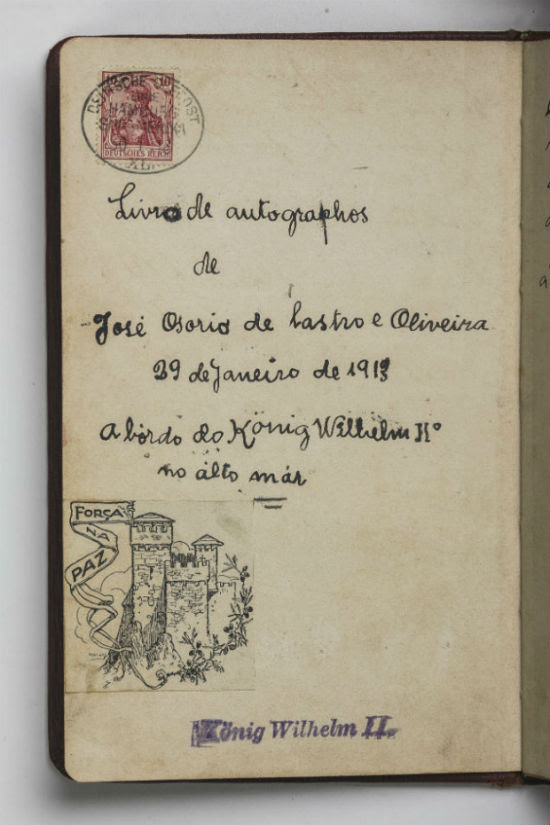 DEUTSCHE SEEPOST
DEUTSCHES REICH
XL
Livro de autographos
de
José Osorio de Castro e Oliveira
29 de Janeiro de 1913
A bordo do König Wilhelm IIº
no alto már
FORÇA
NA
PAZ
König Wilhelm II.